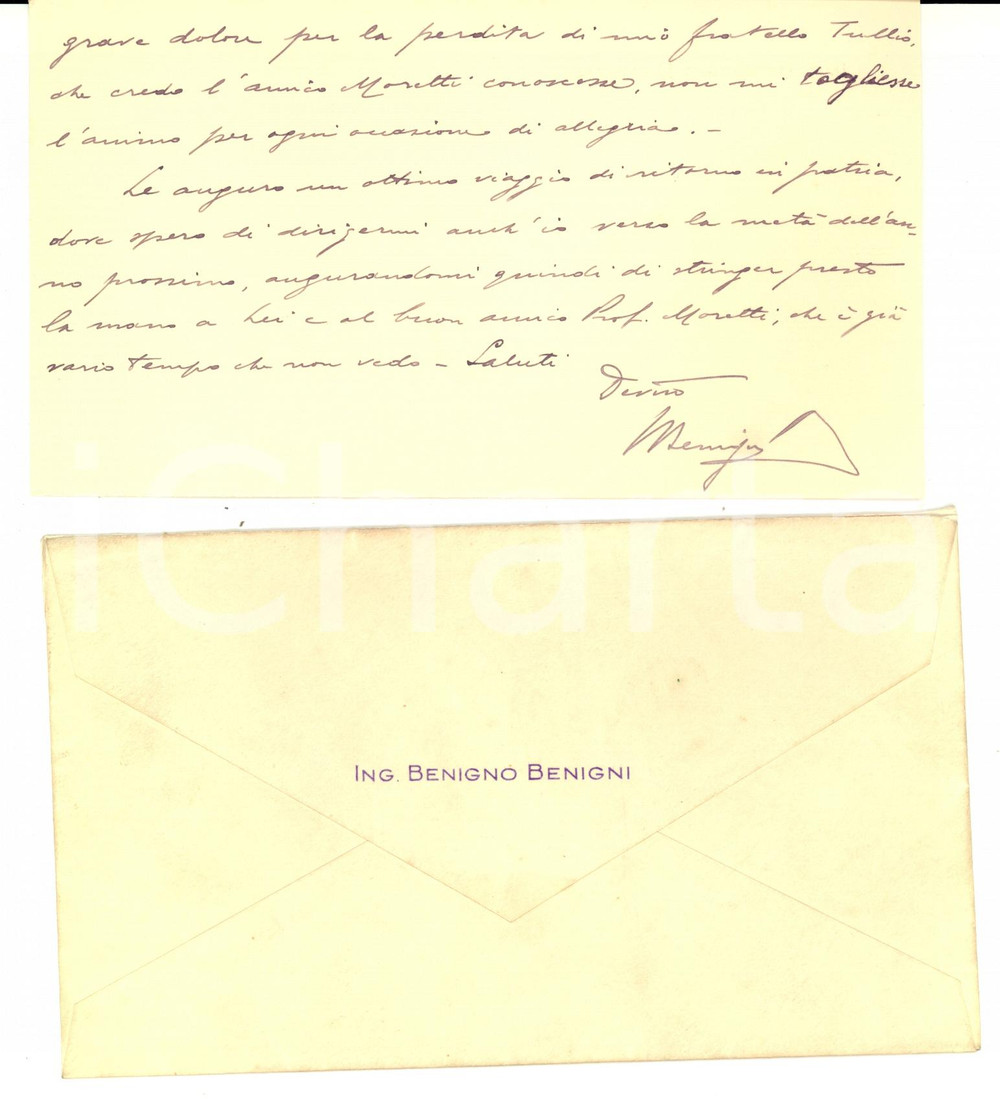 grave dolore per la perdita di mio fratello Tullio,
che credo l'amico Moretti conoscesse, non mi togliesse
l'animo per ogni occasione di allegria. -
Le auguro un ottimo viaggio di ritorno in patria,
dove spero di dirigermi anch'io verso la metà dell'an-
no prossimo, augurandomi quindi di stringer presto
la mano a Lei e al buon amico Prof. Moretti, che è già
vario tempo che non vedo - Saluti
Devmo
BBenigni
iCharta
ING. BENIGNO BENIGNI